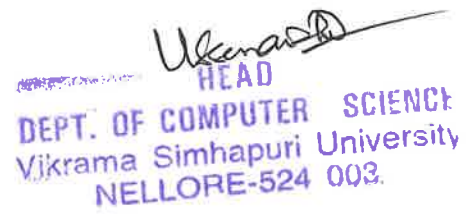 HEAD
DEPT. OF COMPUTER SCIENCE
Vikrama Simhapuri University
NELLORE-524 003.